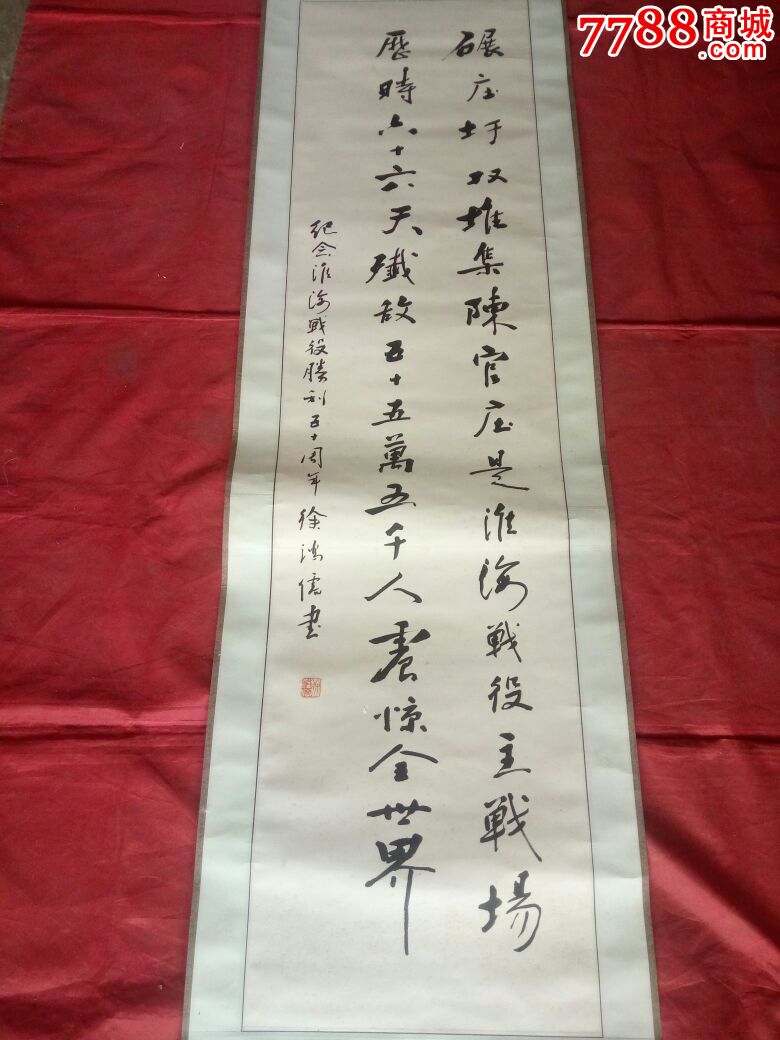 碾庄圩双堆集陳官庄是淮海戰役主戰場
歷時六十六天殲敌五十五萬五千人震惊全世界
纪念淮海戰役勝利五十周年 徐洪儒書
7788商城
.com